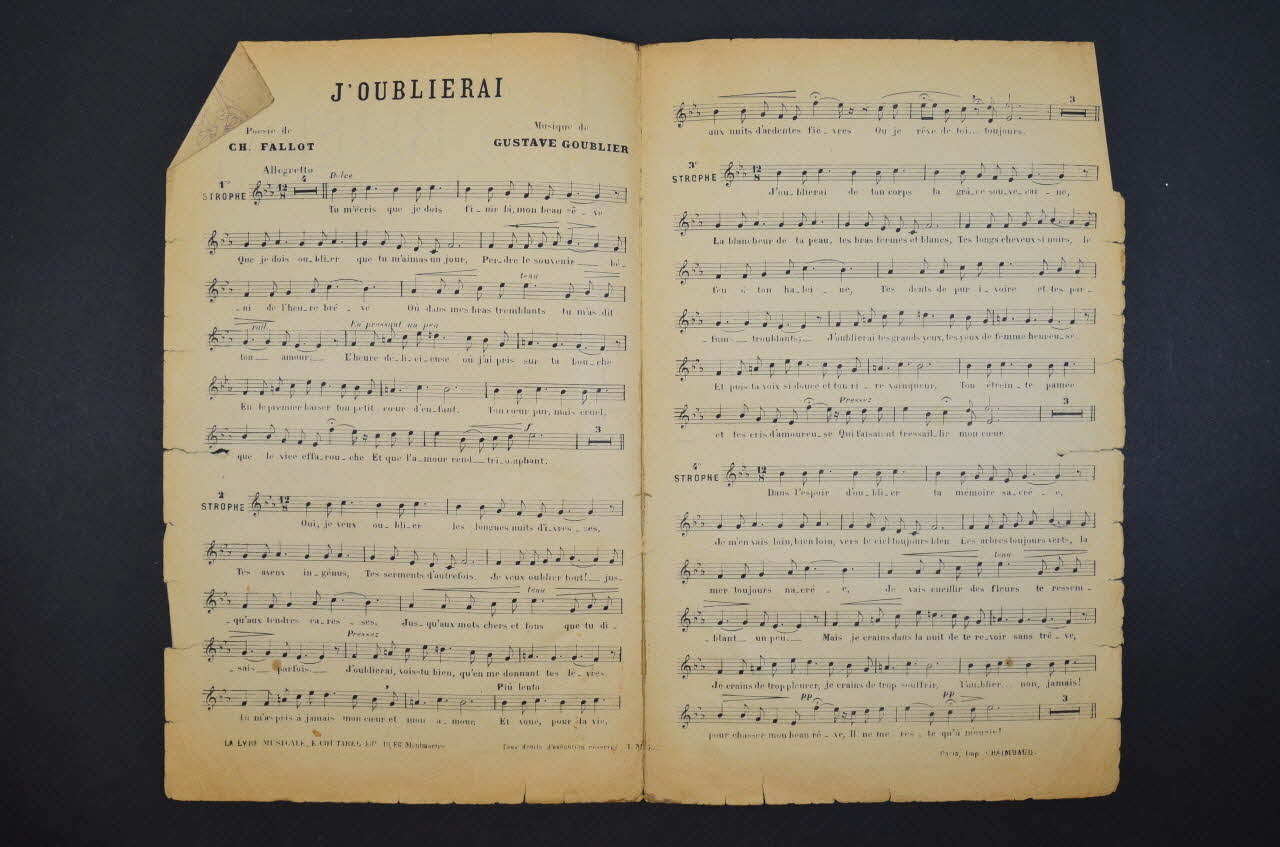 J'OUBLIERAI
Poésie de
CH. FALLOT
Musique de
GUSTAVE GOUBLIER
Allegretto
4
Dolce
1re STROPHE
12/8
Tu m'écris que je dois fi_nir là, mon beau rê_ve
Que je dois ou_bli_er que tu m'aimas un jour, Perdre le souvenir bé_
tenu
_ni de l'heu_re brè_ve Où dans mes bras tremblants tu m'as dit
rall.
En pressant un peu
ton amour. L'heure dé_li_ci_euse où j'ai pris sur ta bou_che
En le premier baiser ton petit cœur d'enfant. Ton cœur pur, mais cruel,
f
3
que le vice effa_rou_che Et que l'a_mour rend tri_omphant.
2
STROPHE
12/8
Oui, je veux ou_bli_er les longues nuits d'i_vres_ses,
Tes aveux in_génus, Tes serments d'autrefois. Je veux oublier tout! jus_
tenu
_qu'aux tendres ca_res_ses, Jus_qu'aux mots chers et fous que tu di_
Pressez
_sais parfois. J'oublierai, vois-tu bien, qu'en me donnant tes lè_vres
Più lento
Tu m'as pris à jamais mon cœur et mon a_mour, Et voue, pour la vie,
LA LYRE MUSICALE, E. COUTAREL Fg Montmartre
Tous droits d'exécution réservés
3
aux nuits d'ardentes fiè_vres Ou je rêve de toi... toujours.
3e STROPHE
12/8
J'ou_blierai de ton corps la grâ_ce sou_ve_rai_ne,
La blancheur de ta peau, tes bras fermes et blancs, Tes longs cheveux si noirs, le
feu d' ton ha_lei_ne, Tes dents de pur i_voire et tes par_
_fums troublants; J'oublierai tes grands yeux, tes yeux de femme heureuse
Et puis ta voix si douce et ton ri_re vainqueur, Ton étrein_te pamée
Pressez
3
et tes cris d'amoureu_se Qui faisaient tressail_lir mon cœur.
4e
STROPHE
12/8
Dans l'espoir d'ou_bli_er ta mémoire sa_cré_e,
Je m'en vais loin, bien loin, vers le ciel toujours bleu Les arbres toujours verts, la
tenu
mer toujours na_cré_e, Je vais cueillir des fleurs te ressem_
_blant un peu. Mais je crains dans la nuit de te re_voir sans trê_ve,
Je crains de trop pleurer, je crains de trop souffrir, T'oublier... non, jamais!
pp
pp
3
pour chasser mon beau rê_ve, Il ne me res_te qu'à mourir!
Paris, Imp. CHAIMBAUD